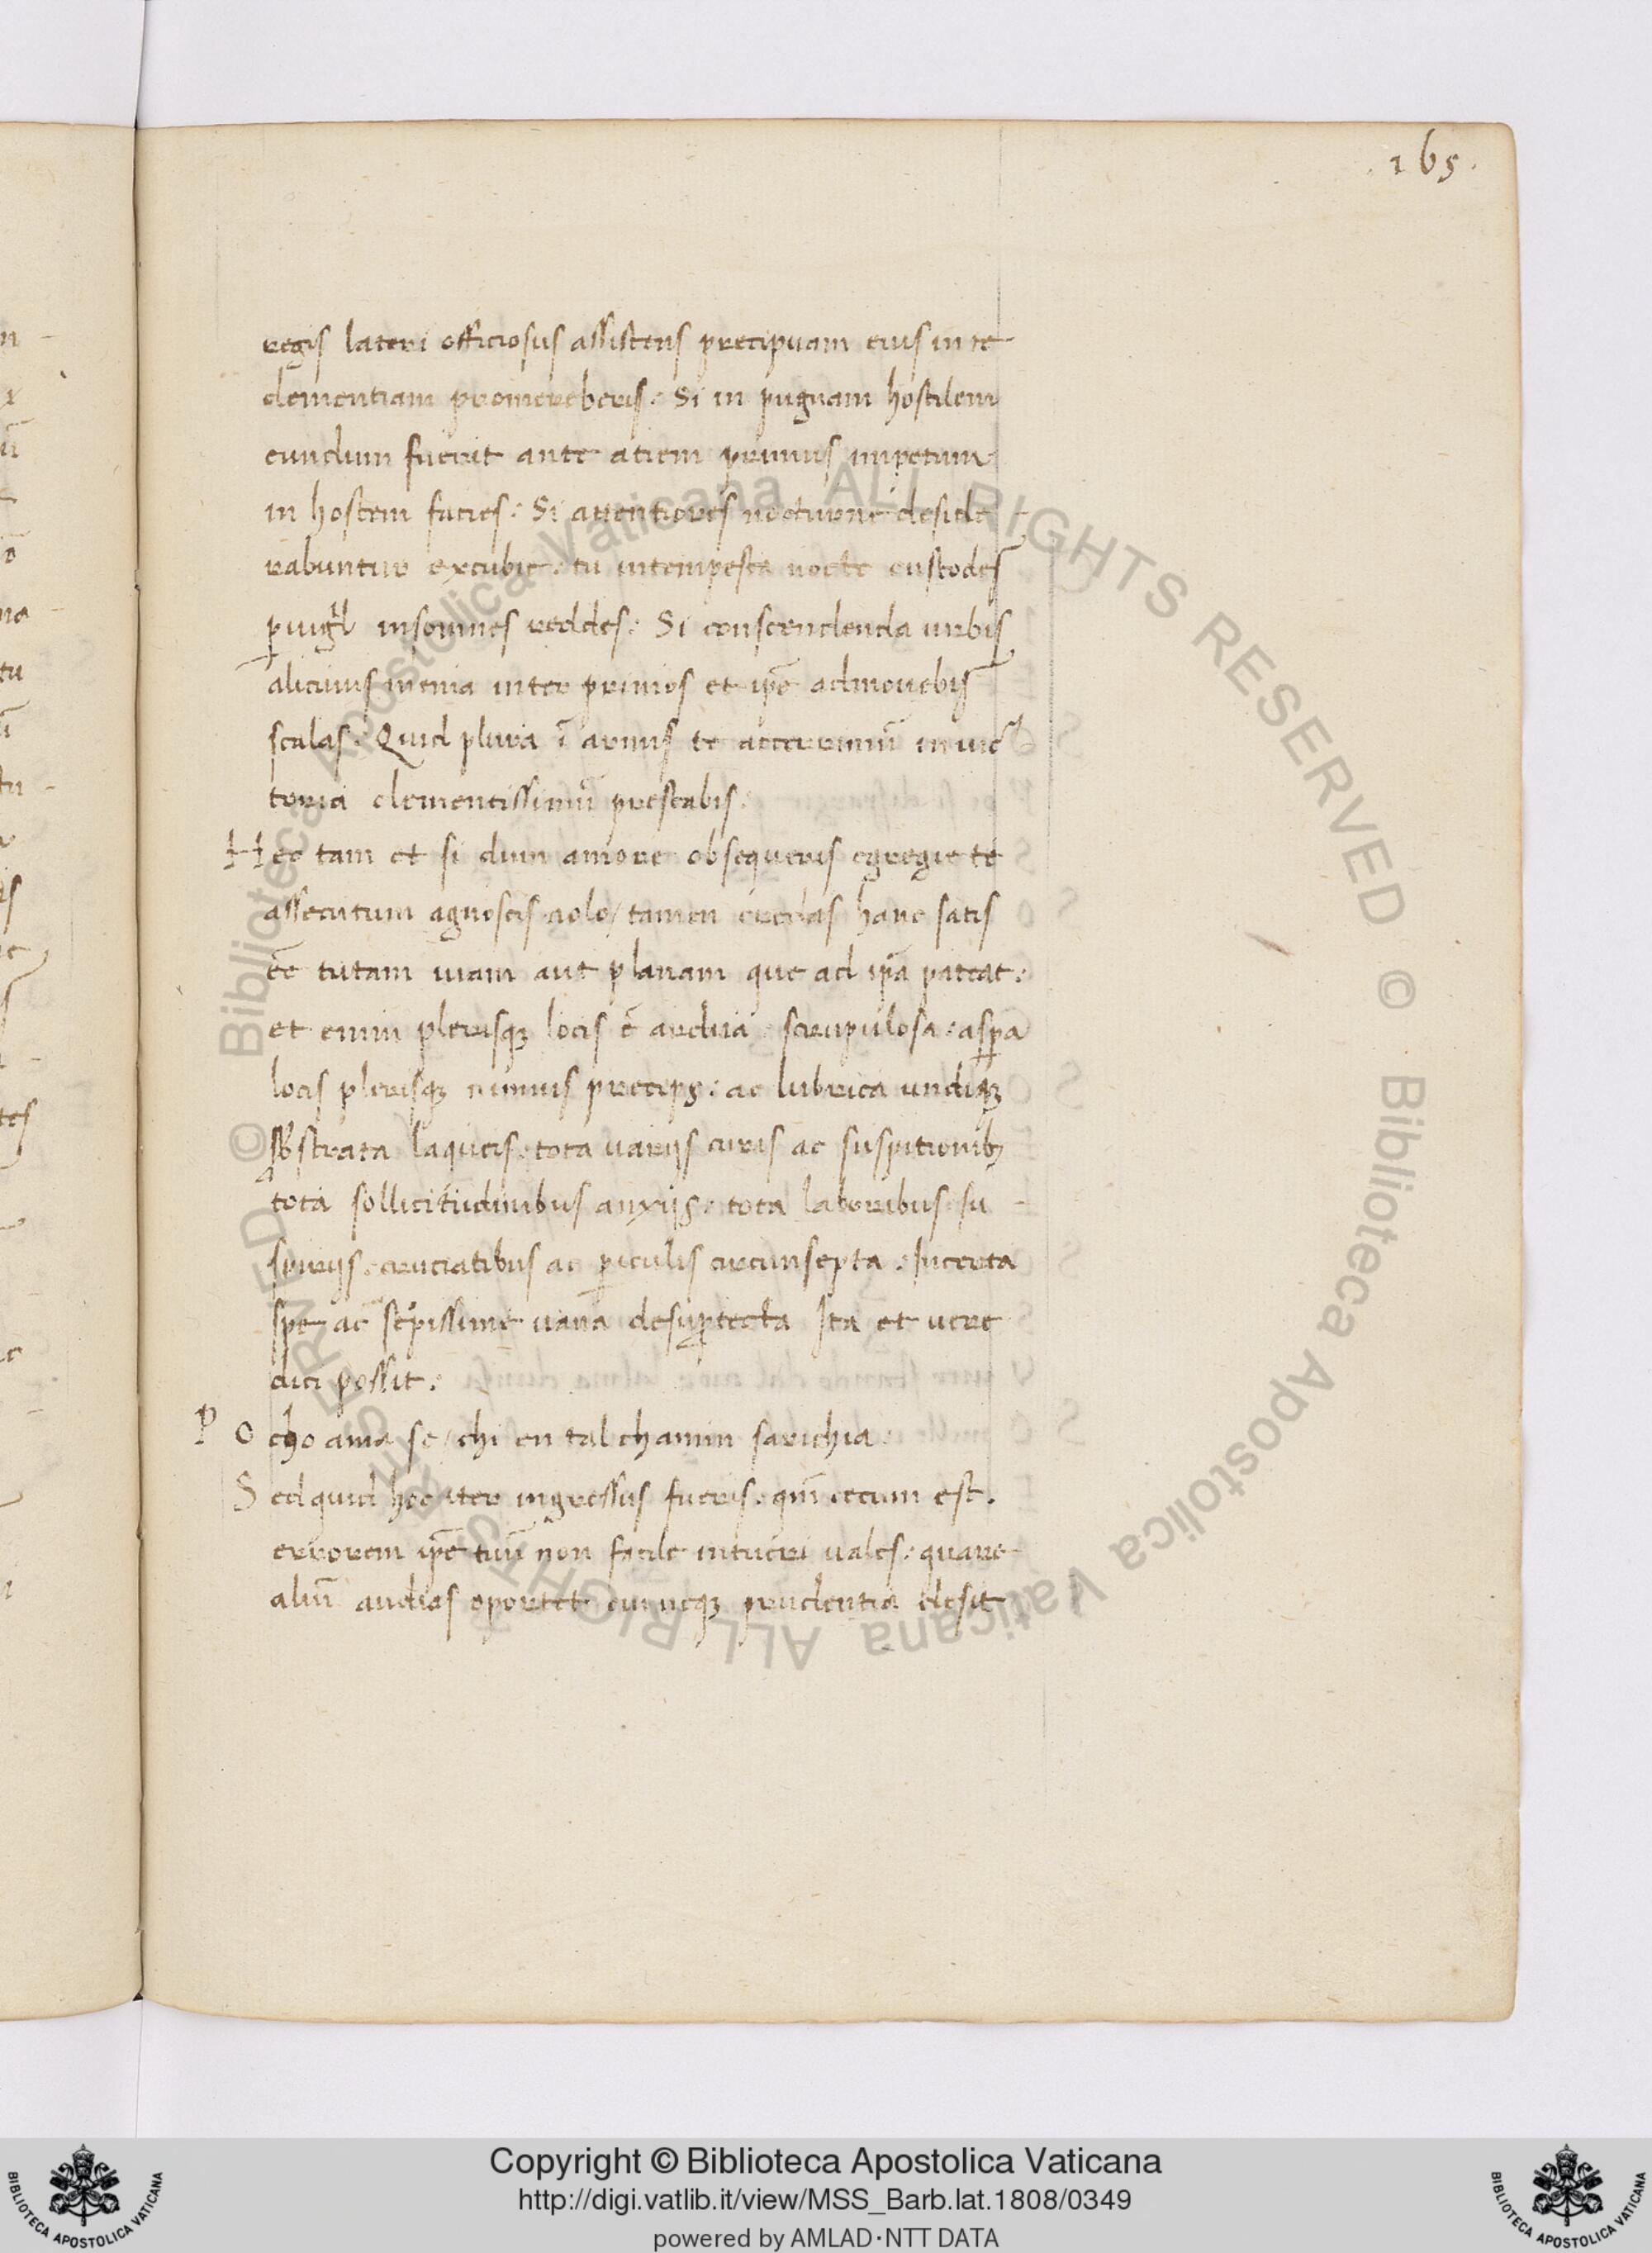 .165.
regis lateri officiosus assistens precipuam eius in te
clementiam promereberis: Si in pugnam hostilem
eundum fuerit ante atiem primus impetum
in hostem facies: Si attentiores nocturne deside-
rabuntur excubie: tu intempesta nocte custodes
puigil insomnes reddes: Si conscendenda urbis
alicuius menia inter primos et ipē admouebis
scalas: Quid plura ī armis te acerrimū in uic
toria clementissimū prestabis:
Hec tam et si dum amore obsequeris egregie te
assecutum agnoscis nolo/ tamen credas hanc satis
ēē tutam uiam aut planam que ad ipā pateat:
et enim plerisqꝫ locis ē ardua: scrupulosa: aspa
locis plerisqꝫ nimius preceps: ac lubrica undiqꝫ
substrata laqueis: tota uarijs curis ac suspitionibꝫ
tota sollicitudinibus anxijs: tota laboribus su-
spirijs: cruciatibus ac piculis circumsepta: Incerta
spe ac sepissime uana desuptecta Ita et uere
dici possit:
P O cho ama se/ chi en tal chamin sarichia.
Sed quid hoc iter ingressus fueris: qm̄ cecum est.
errorem ipē tuū non facile intueri uales: quare
aliū audias oportet cui neqꝫ prudentia desit
© Biblioteca Apostolica Vaticana ALL RIGHTS RESERVED © Biblioteca Apostolica Vaticana ALL RIGHTS RESERVED
Copyright © Biblioteca Apostolica Vaticana
http://digi.vatlib.it/view/MSS_Barb.lat.1808/0349
powered by AMLAD·NTT DATA
BIBLIOTECA APOSTOLICA VATICANA
BIBLIOTECA APOSTOLICA VATICANA